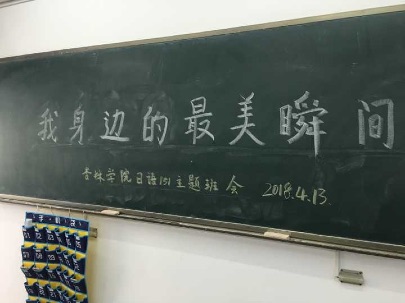 我身边的最美瞬间
杏林学院日语151主题班会 2018.4.13.